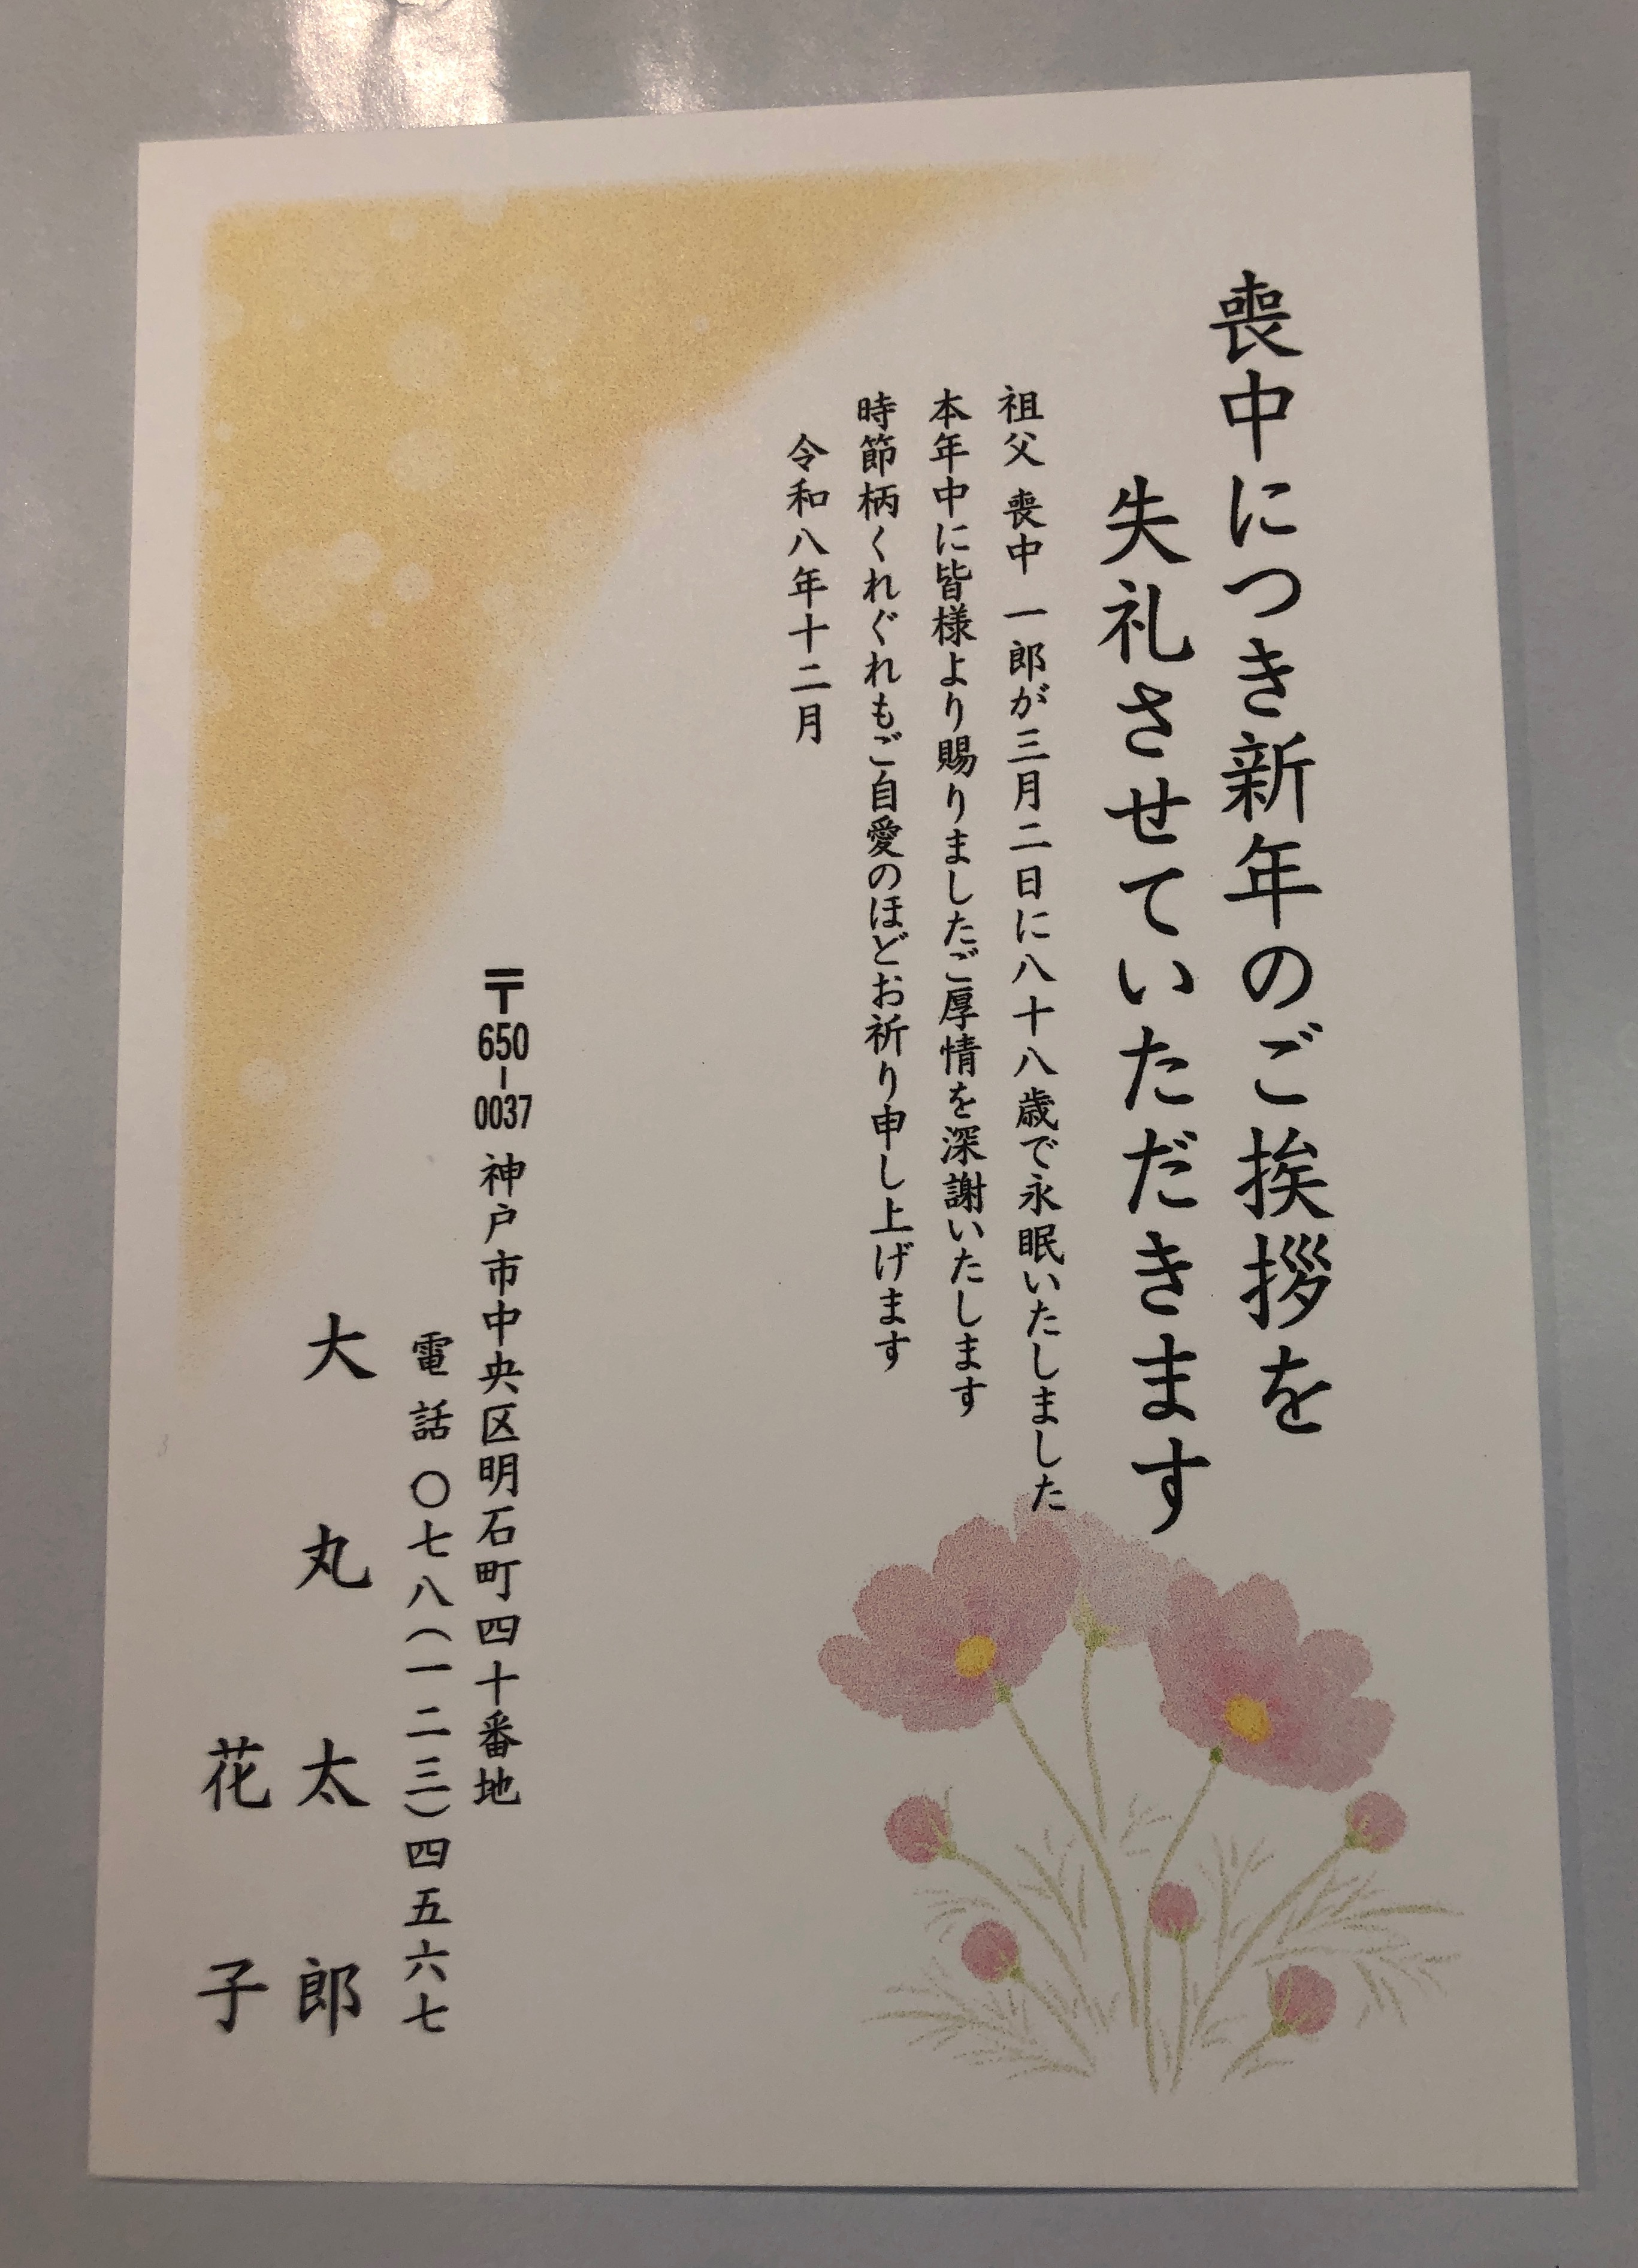 喪中につき新年のご挨拶を
失礼させていただきます
祖父 喪中 一郎が三月二日に八十八歳で永眠いたしました
本年中に皆様より賜りましたご厚情を深謝いたします
時節柄くれぐれもご自愛のほどお祈り申し上げます
令和八年十二月
〒650-0037 神戸市中央区明石町四十番地
電話 〇七八(一二三)四五六七
大丸 太郎
花子